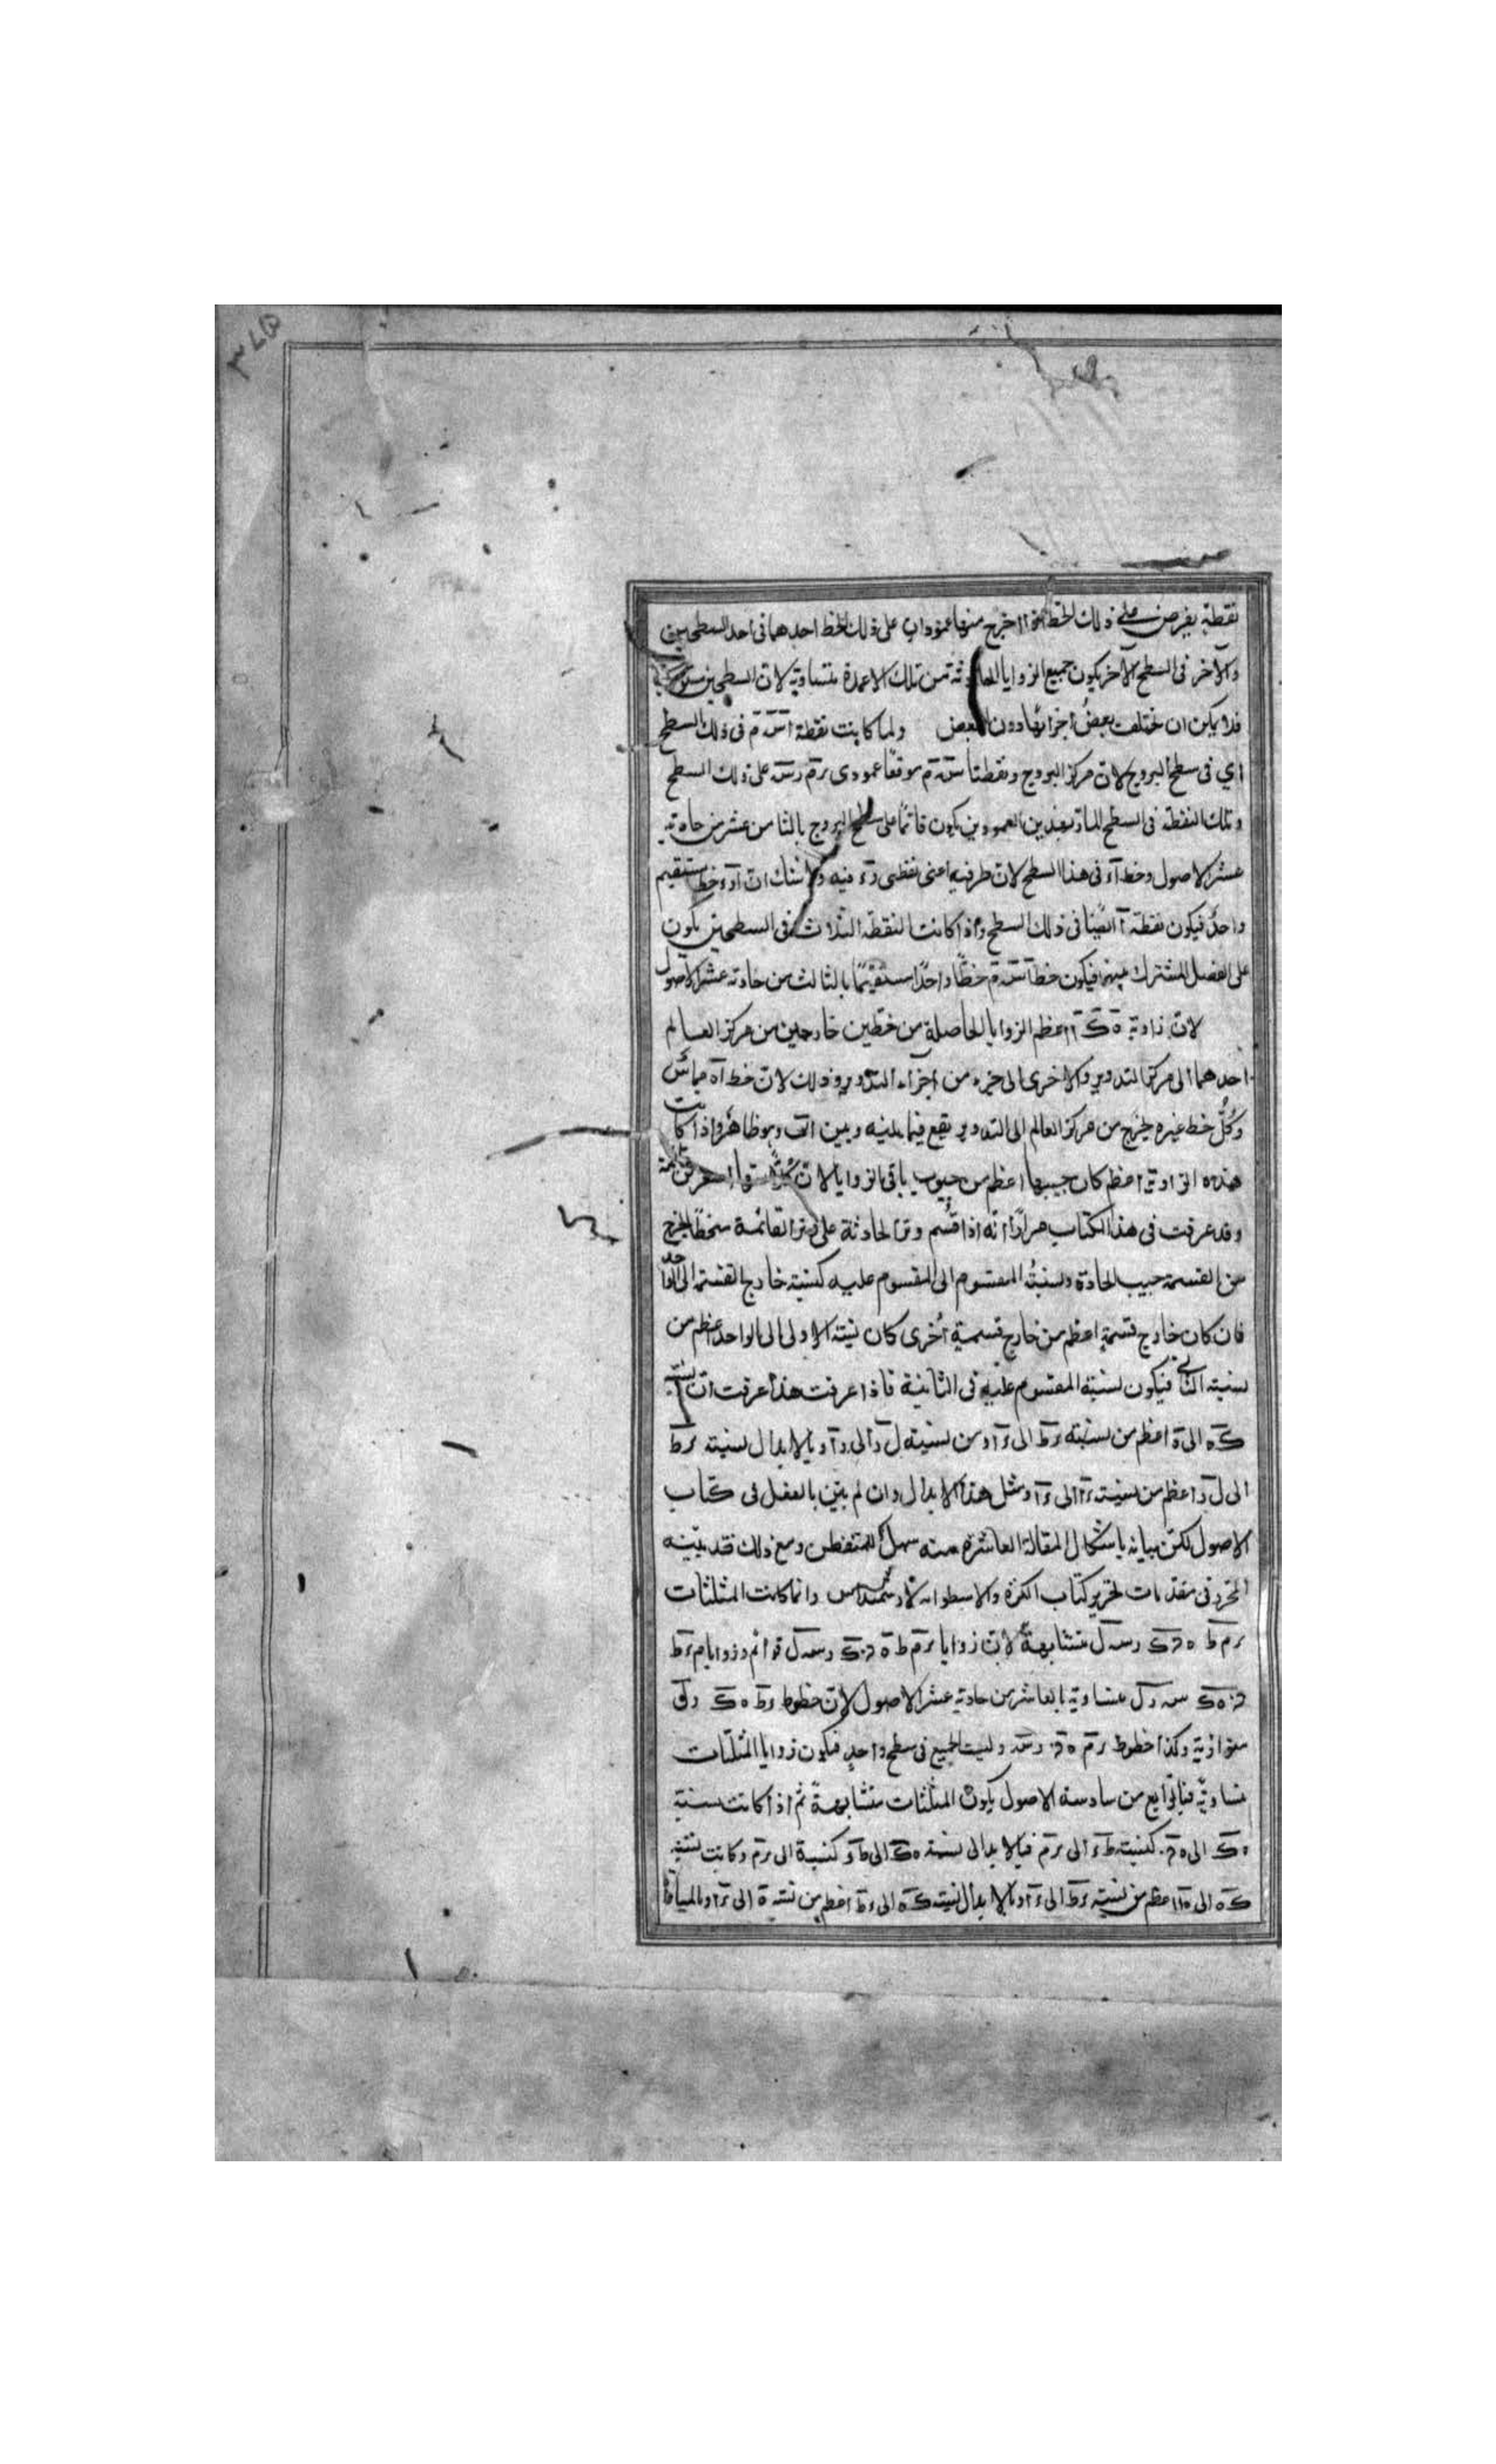 ٣٧٥
نقطة يفرض على ذلك الخط اذا اخرج منها عمودان على ذلك الخط احدهما فى احد السطحين
والآخر فى السطح الآخر يكون جميع الزوايا الحادثة من تلك الاعمدة متساوية لان السطحين
فلا يمكن ان يختلف بعضُ اجزائها دون البعض ولما كانت نقطة ا س م فى ذلك السطح
اي فى سطح البروج لان مركز البروج ونقطتا س م موقعا عمودى رم رس على ذلك السطح
وتلك النقطة فى السطح المارّ بهذين العمودين يكون قائما على سطح البروج بالثامن عشر من حادية
عشر الاصول وخط آء فى هذا السطح لان طرفيه اعنى نقطتى رء فيه ولا شك ان آرء خط مستقيم
واحدٌ فيكون نقطة آ ايضًا فى ذلك السطح واذا كانت النقطة الثلاث فى السطحين يكون
على الفصل المشترك بينهما فيكون خط آسم خطًا واحدًا مستقيمًا بالثالث من حادية عشر الاصول
لان زاوية ه ك آ اعظم الزوايا الحاصلة من خطين خارجين من مركز العالم
احدهما الى مركز التدوير والاخرى الى جزء من اجزاء التدوير وذلك لان خط آه مماسّ
وكُلّ خط غيره يخرج من مركز العالم الى التدوير يقع فيما بينه وبين وهو ظاهر واذا كانت
هذه الزاوية اعظم كان جيبها اعظم من جيوب باقى الزوايا لان كُلّا منها اصغر من قائمة
وقد عرفت فى هذا الكتاب مرارًا انه اذا قُسم وتر الحادثة على وتر القائمة يخرج
من القسمة جيب الحادة ونسبةُ المقسوم الى المقسوم عليه كنسبة خارج القسمة الى الواحد
فان كان خارج قسمةٍ اعظم من خارج قسمةٍ اُخرى كان نسبة الاولى الى الواحد اعظم من
نسبة الثانى فيكون نسبة المقسوم عليه فى الثانية فاذا عرفت هذا عرفت ان نسبة
ك ه الى ه آ اعظم من نسبة ء ط الى ء آ ومن نسبة ل ر الى ر آ وبالابدال نسبة ء ط
الى ل ر اعظم من نسبة ء آ الى ر آ ومثل هذا الابدال وان لم يبين بالفعل فى كتاب
الاصول لكن بيانه باشكال المقالة العاشرة منه سهل للمتفطن ومع ذلك فقد بيّنه
المحرر فى مقدمات تحرير كتاب الكرة والاسطوانة لارشميدس وانما كانت المثلثات
ء م ط ه ك رس ل متشابهة لان زوايا ء م ط ه ك رس ل قوائم وزوايا م ء ط
ه ك س ر ل متساوية بالعاشر من حادية عشر الاصول لان خطوط ء ط ه ك ر ل
متوازية وكذا خطوط ء م ه رس وليست الجميع فى سطح واحدٍ فيكون زوايا المثلثات
متساويةً فبالرابع من سادسة الاصول يكون المثلثات متشابهةً ثم اذا كانت نسبة
ه ك الى ه كنسبة ط ء الى ء م فبالابدال نسبة ه ك الى ط ء كنسبة ه الى ء م وكانت نسبة
ك ه الى ه آ اعظم من نسبة ء ط الى ء آ وبالابدال نسبة ك ه الى ء ط اعظم من نسبة ه آ الى ء آ وبالمساواة